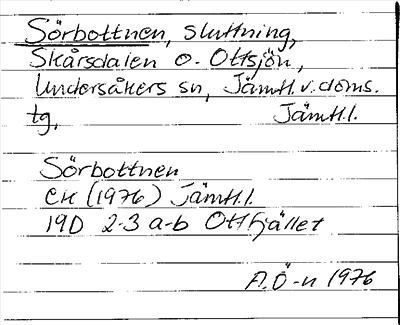 Sörbottnen, sluttning,
Skårsdalen o. Ottsjön,
Undersåkers sn, Jämtl. v. doms.
tg, Jämtl.l.
Sörbottnen
EK (1976) Jämtl.l.
19D 2-3 a-b Ottfjället
A.Ö-n 1976